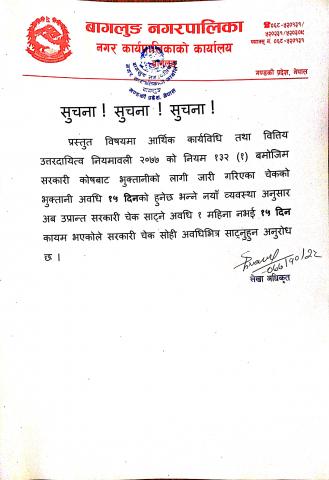 बागलुङ नगरपालिका
नगर कार्यपालिकाको कार्यालय
गण्डकी प्रदेश, नेपाल
सुचना ! सुचना ! सुचना !
प्रस्तुत विषयमा आर्थिक कार्यविधि तथा वित्तिय
उत्तरदायित्व नियमावली २०७७ को नियम १३२ (१) बमोजिम
सरकारी कोषबाट भुक्तानीको लागी जारी गरिएका चेकको
भुक्तानी अवधि १५ दिनको हुनेछ भन्ने नयाँ व्यवस्था अनुसार
अब उप्रान्त सरकारी चेक साट्ने अवधि १ महिना नभई १५ दिन
कायम भएकोले सरकारी चेक सोही अवधिभित्र साट्नुहुन अनुरोध
छ ।
लेखा अधिकृत